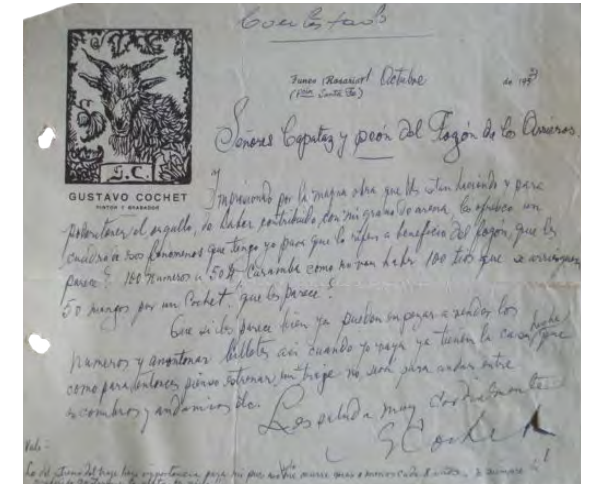 Contestado
G.C.
GUSTAVO COCHET
PINTOR Y GRABADOR
Funes (Rosario) Octubre de 195
(Pcia Santa Fe)
Señores Capataz y peón del Fogón de los Arrieros
Impresionado por la magna obra que Vds. están haciendo y para
poder tener el orgullo, de haber contribuido con mi grano de arena, les ofrezco un
cuadro de esos fenómenos que tengo yo para que lo rifen a beneficio del fogón, que les
parece? 100 números a 50 $ Caramba como no van haber 100 tios que se arriesguen
50 mangos por un Cochet, que les parece?
Que si les parece bien ya pueden empezar a vender los
números y amontonar billetes así cuando yo vaya ya tienen la casa hecha, que
como para entonces pienso estrenar un traje no será para andar entre
escombros y andamios etc. Los saluda muy cordialmente
G Cochet
Vale:
Lo del traje importancia para mi ocurre mas o menos cada 8 años